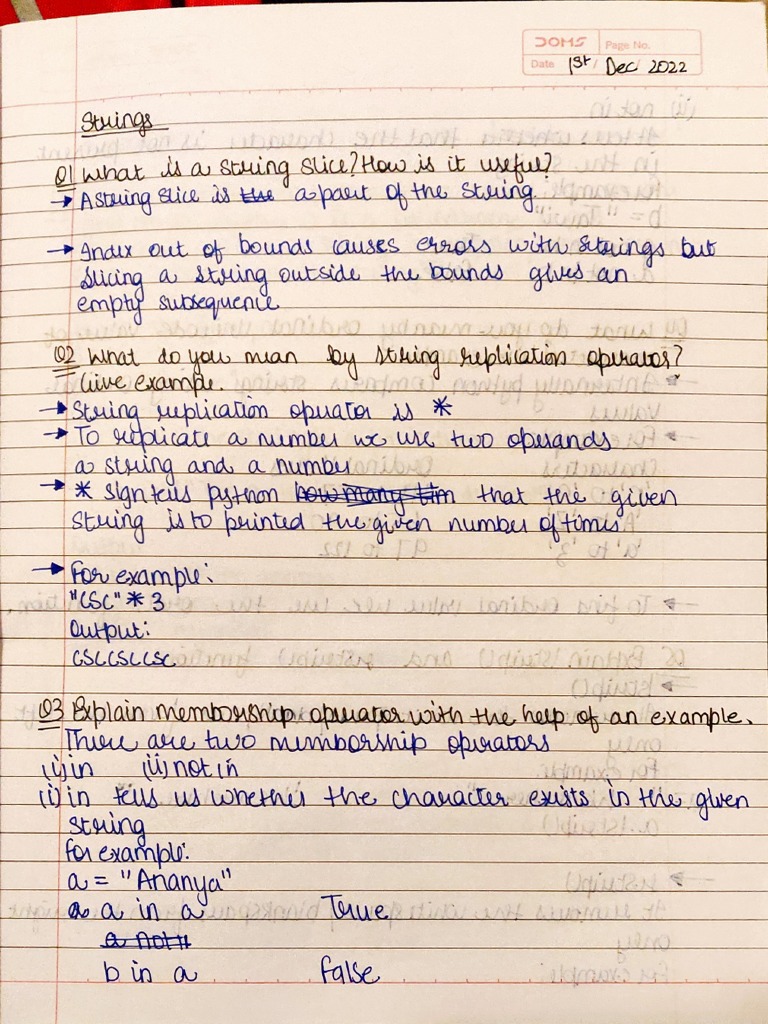 DOMS Page No.
Date 1st / Dec 2022
Strings
Q1 What is a string slice? How is it useful?
→ A string slice is the a part of the string.
→ Index out of bounds causes errors with strings but
slicing a string outside the bounds gives an
empty subsequence
Q2 What do you mean by string replication operator?
Give example.
→ String replication operator is *
→ To replicate a number we use two operands
a string and a number
→ * sign tells python how many tim that the given
string is to printed the given number of times.
→ For example:
"CSC" * 3
Output:
CSCCSCCSC
Q3 Explain membership operator with the help of an example.
There are two membership operators
(i) in (ii) not in
(i) in tells us whether the character exists in the given
string
for example:
a = "Ananya"
a in a True
a not
b in a False